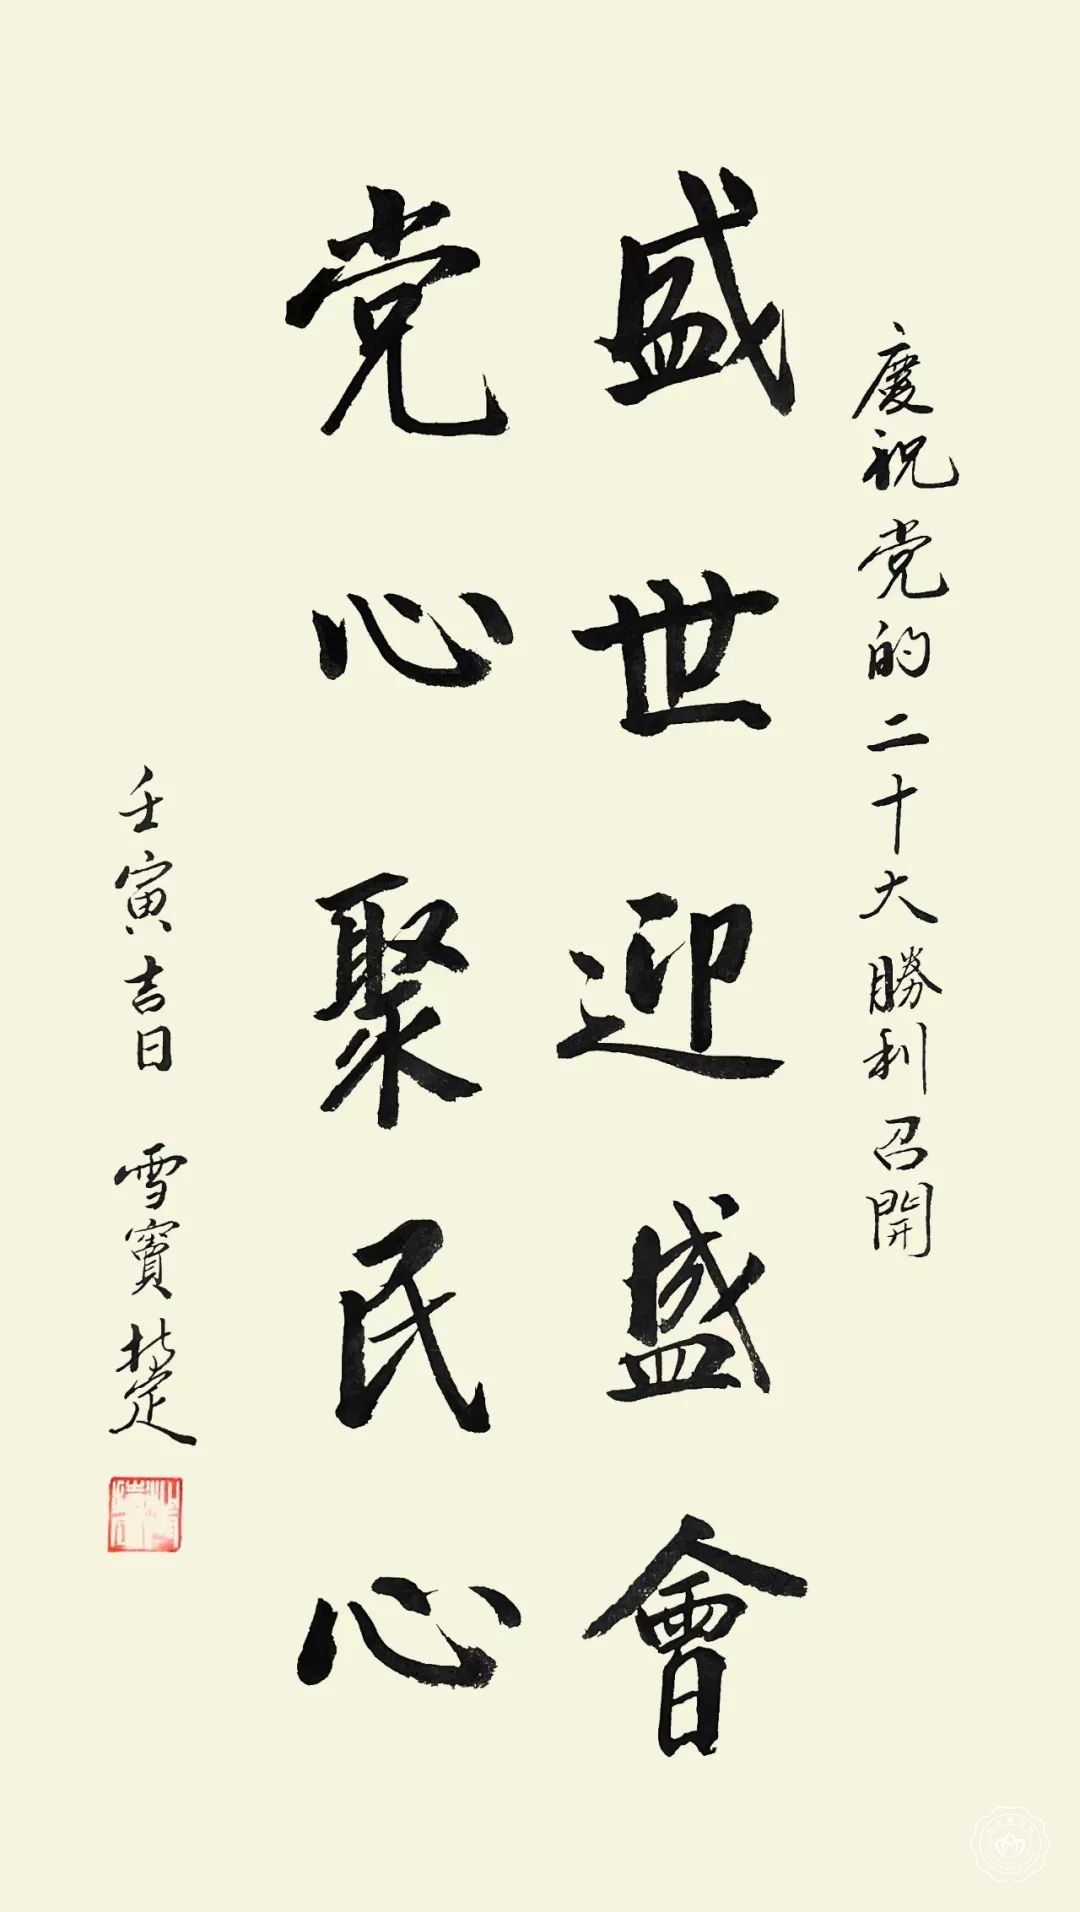 慶祝党的二十大勝利召開
盛世迎盛會
党心聚民心
壬寅吉日 雪竇